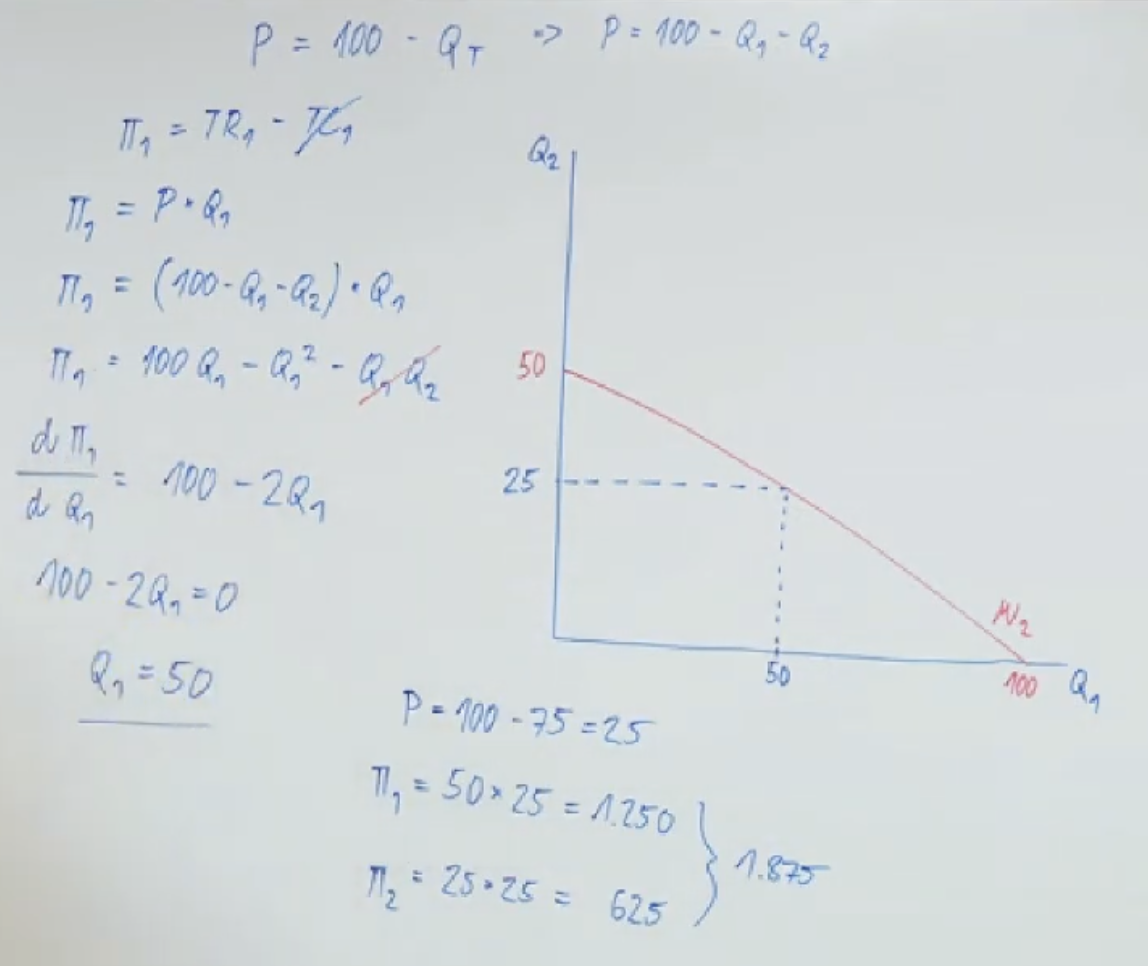 P = 100 - Q_T => P = 100 - Q₁ - Q₂
π₁ = TR₁ - TC₁
π₁ = P · Q₁
π₁ = (100 - Q₁ - Q₂) · Q₁
π₁ = 100 Q₁ - Q₁² - Q₁ Q₂
d π₁ / d Q₁ = 100 - 2Q₁
100 - 2Q₁ = 0
Q₁ = 50
Q₂
50
25
50
100
Q₁
P = 100 - 75 = 25
π₁ = 50 × 25 = 1.250
π₂ = 25 · 25 = 625
} 1.875